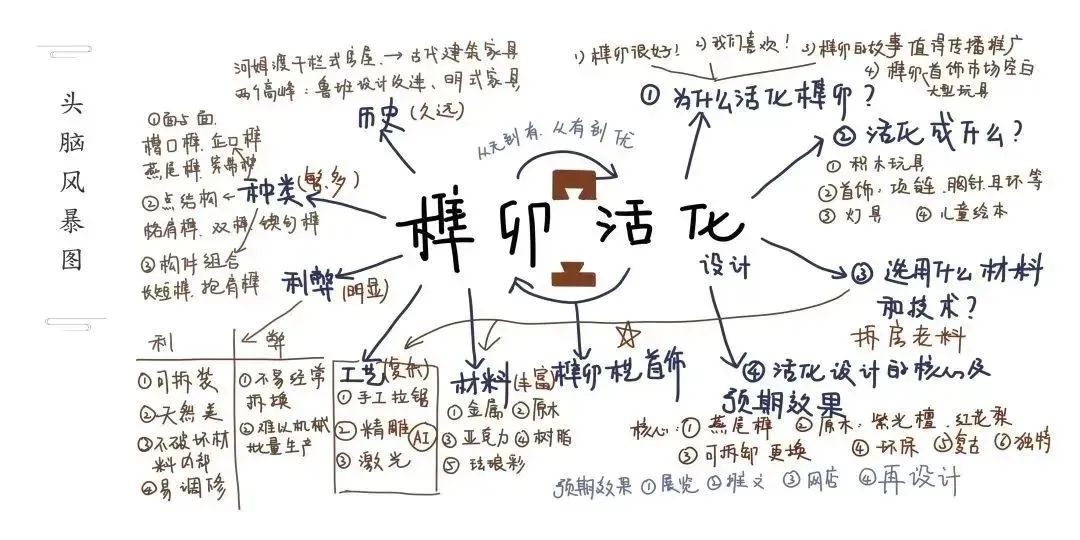 头脑风暴图
河姆渡干栏式房屋.→古代建筑家具
两个高峰：鲁班设计改进、明式家具
历史(久远)
①面与面
槽口榫.企口榫
燕尾榫.穿带榫
②点结构
格肩榫.双榫.锲钩榫
③构件组合
长短榫.抱肩榫
种类(繁多)
利弊(明显)
利
弊
①可拆装
②天然美
③不破坏材料内部
④易调修
①不易经常拆换
②难以机械批量生产
从无到有.从有到优
榫卯活化
设计
工艺(复杂)
①手工拉锯
②精雕
③激光
AI
材料(丰富)
①金属 ②原木
③亚克力 ④树脂
⑤珐琅彩
榫卯木首饰
1)榫卯很好！ 2)我们喜欢！ 3)榫卯的故事值得传播推广
4)榫卯、首饰市场空白
大型玩具
①为什么活化榫卯？
②活化成什么？
①积木玩具
②首饰：项链.胸针.耳环等
③灯具 ④儿童绘本
③选用什么材料
和技术？
拆房老料
④活化设计的核心及
预期效果
核心：①燕尾榫 ②原木：紫光檀.红花梨
③可拆卸更换 ④环保 ⑤复古 ⑥独特
预期效果 ①展览 ②推文 ③网店 ④再设计